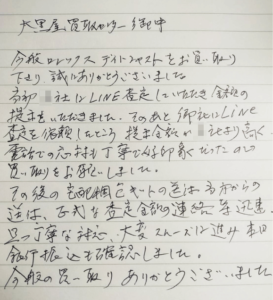 大黒屋買取センター御中
今般ロレックスデイトジャストをお買い取り
下さり誠にありがとうございました
当初 社にLINE査定していただき金額の
提示をいただきました。そのあと御社にLINE
査定を依頼したところ提示金額が 社より高く
電話での応対も丁寧で好印象だったので
買い取りをお願いしました。
その後の宅配梱包キットの送 からの
送 、正式な査定金額の連絡等迅速
且つ丁寧な対応、大変スムーズに進み本日
銀行振込も確認しました。
今般の買い取りありがとうございました